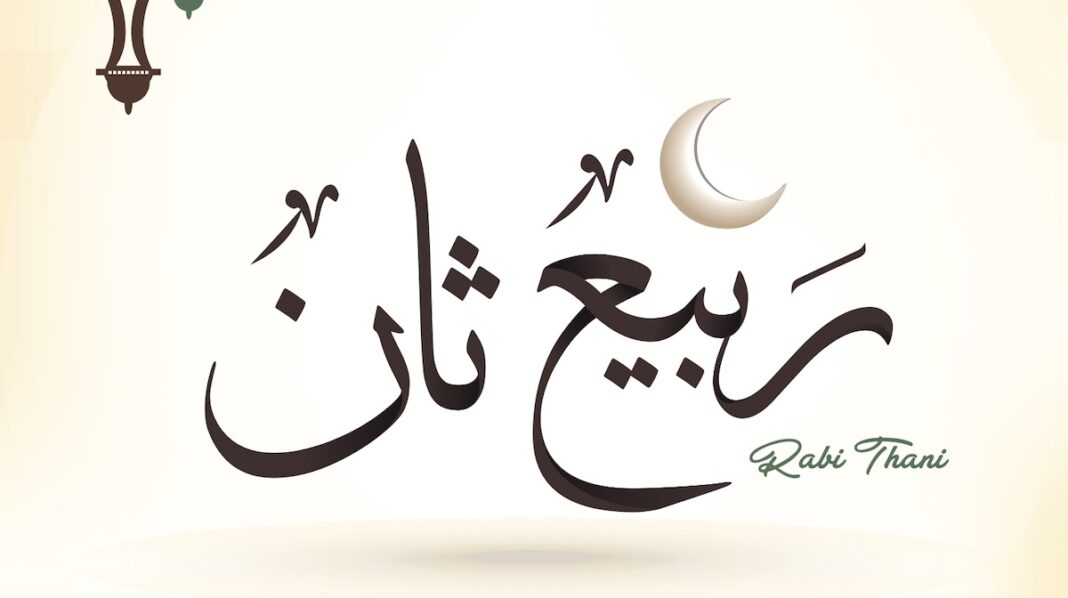 رَبيعٌ ثانٌ
Rabi Thani